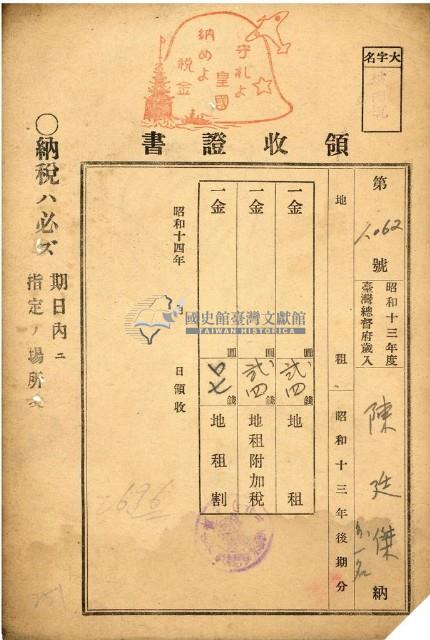 守れよ
皇國
納めよ
税金
大字名
領收證書
第1062號
昭和十三年度
臺灣總督府歳入
陳廷傑
外一名
納
地租
昭和十三年後期分
一金
圓
弐四
錢
地租
一金
圓
弐四
錢
地租附加税
一金
圓
錢
地租割
昭和十四年
月
日領收
國史館臺灣文獻館
TAIWAN HISTORICA
○納税ハ必ズ
期日內ニ
指定ノ場所
2696